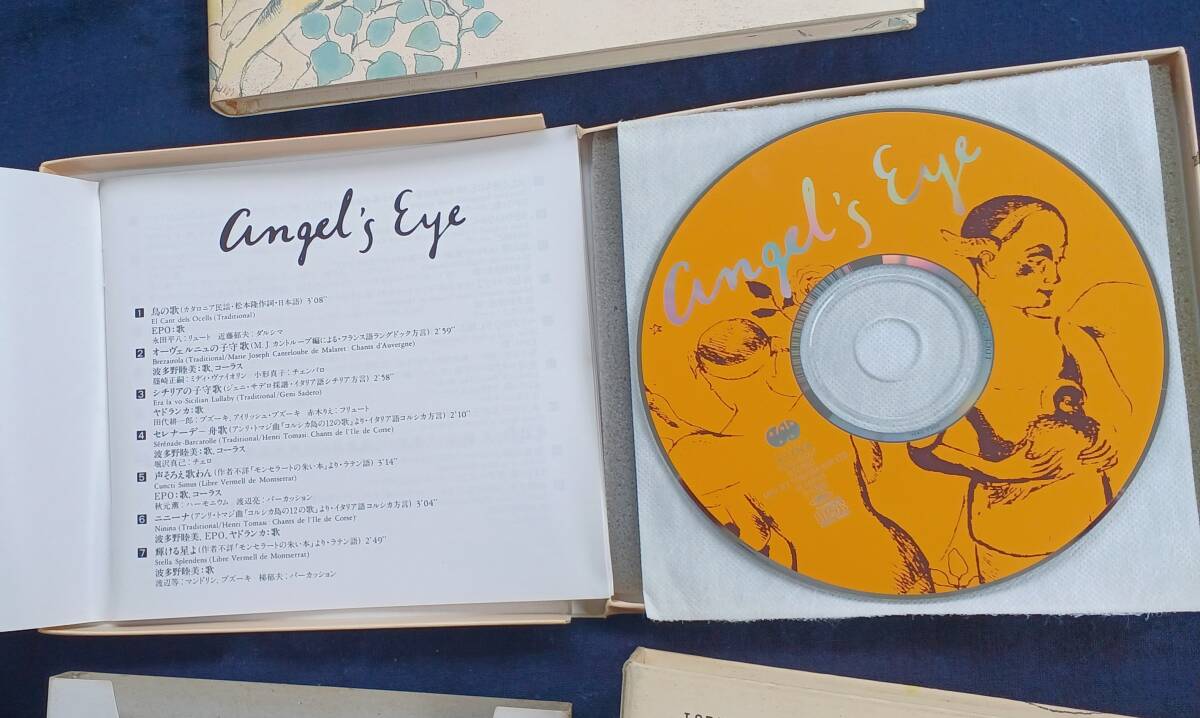 angel's Eye
1 鳥の歌(カタロニア民謡・松本隆作詞・日本語) 3'08"
El Cant dels Ocells (Traditional)
EPO:歌
永田平八:リュート 近藤郁夫:ダルシマ
2 オーヴェルニュの子守歌(M. J. カントルーブ編による・フランス語ラングドック方言) 2'59"
Brezairola (Traditional/Marie Joseph Canteloube de Malaret: Chants d'Auvergne)
波多野睦美:歌、コーラス
篠崎正嗣:ミディ・ヴァイオリン 小形真子:チェンバロ
3 シチリアの子守歌(ジェニ・サデロ採譜・イタリア語シチリア方言) 2'58"
Era la vo Sicilian Lullaby (Traditional/Geni Sadero)
ヤドランカ:歌
田代耕一郎:ブズーキ、アイリッシュ・ブズーキ 赤木りえ:フリュート
4 セレナーデー舟歌(アンリ・トマジ曲「コルシカ島の12の歌」より・イタリア語コルシカ方言) 2'10"
Sérénade-Barcarolle (Traditional/Henri Tomasi: Chants de l'Ile de Corse)
波多野睦美:歌、コーラス
堀沢真己:チェロ
5 声そろえ歌わん(作者不詳「モンセラートの朱い本」より・ラテン語) 3'14"
Cuncti Simus (Libre Vermell de Montserrat)
EPO:歌、コーラス
秋元薫:ハーモニウム 渡辺亮:パーカッション
6 ニニーナ(アンリ・トマジ曲「コルシカ島の12の歌」より・イタリア語コルシカ方言) 3'04"
Ninina (Traditional/Henri Tomasi: Chants de l'Ile de Corse)
波多野睦美、EPO、ヤドランカ:歌
7 輝ける星よ(作者不詳「モンセラートの朱い本」より・ラテン語) 2'49"
Stella Splendens (Libre Vermell de Montserrat)
波多野睦美:歌
渡辺等:マンドリン、ブズーキ 梯郁夫:パーカッション
angel's Eye